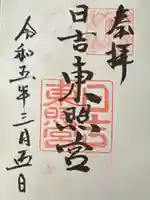 奉拝
日吉東照宮
令和五年三月五日